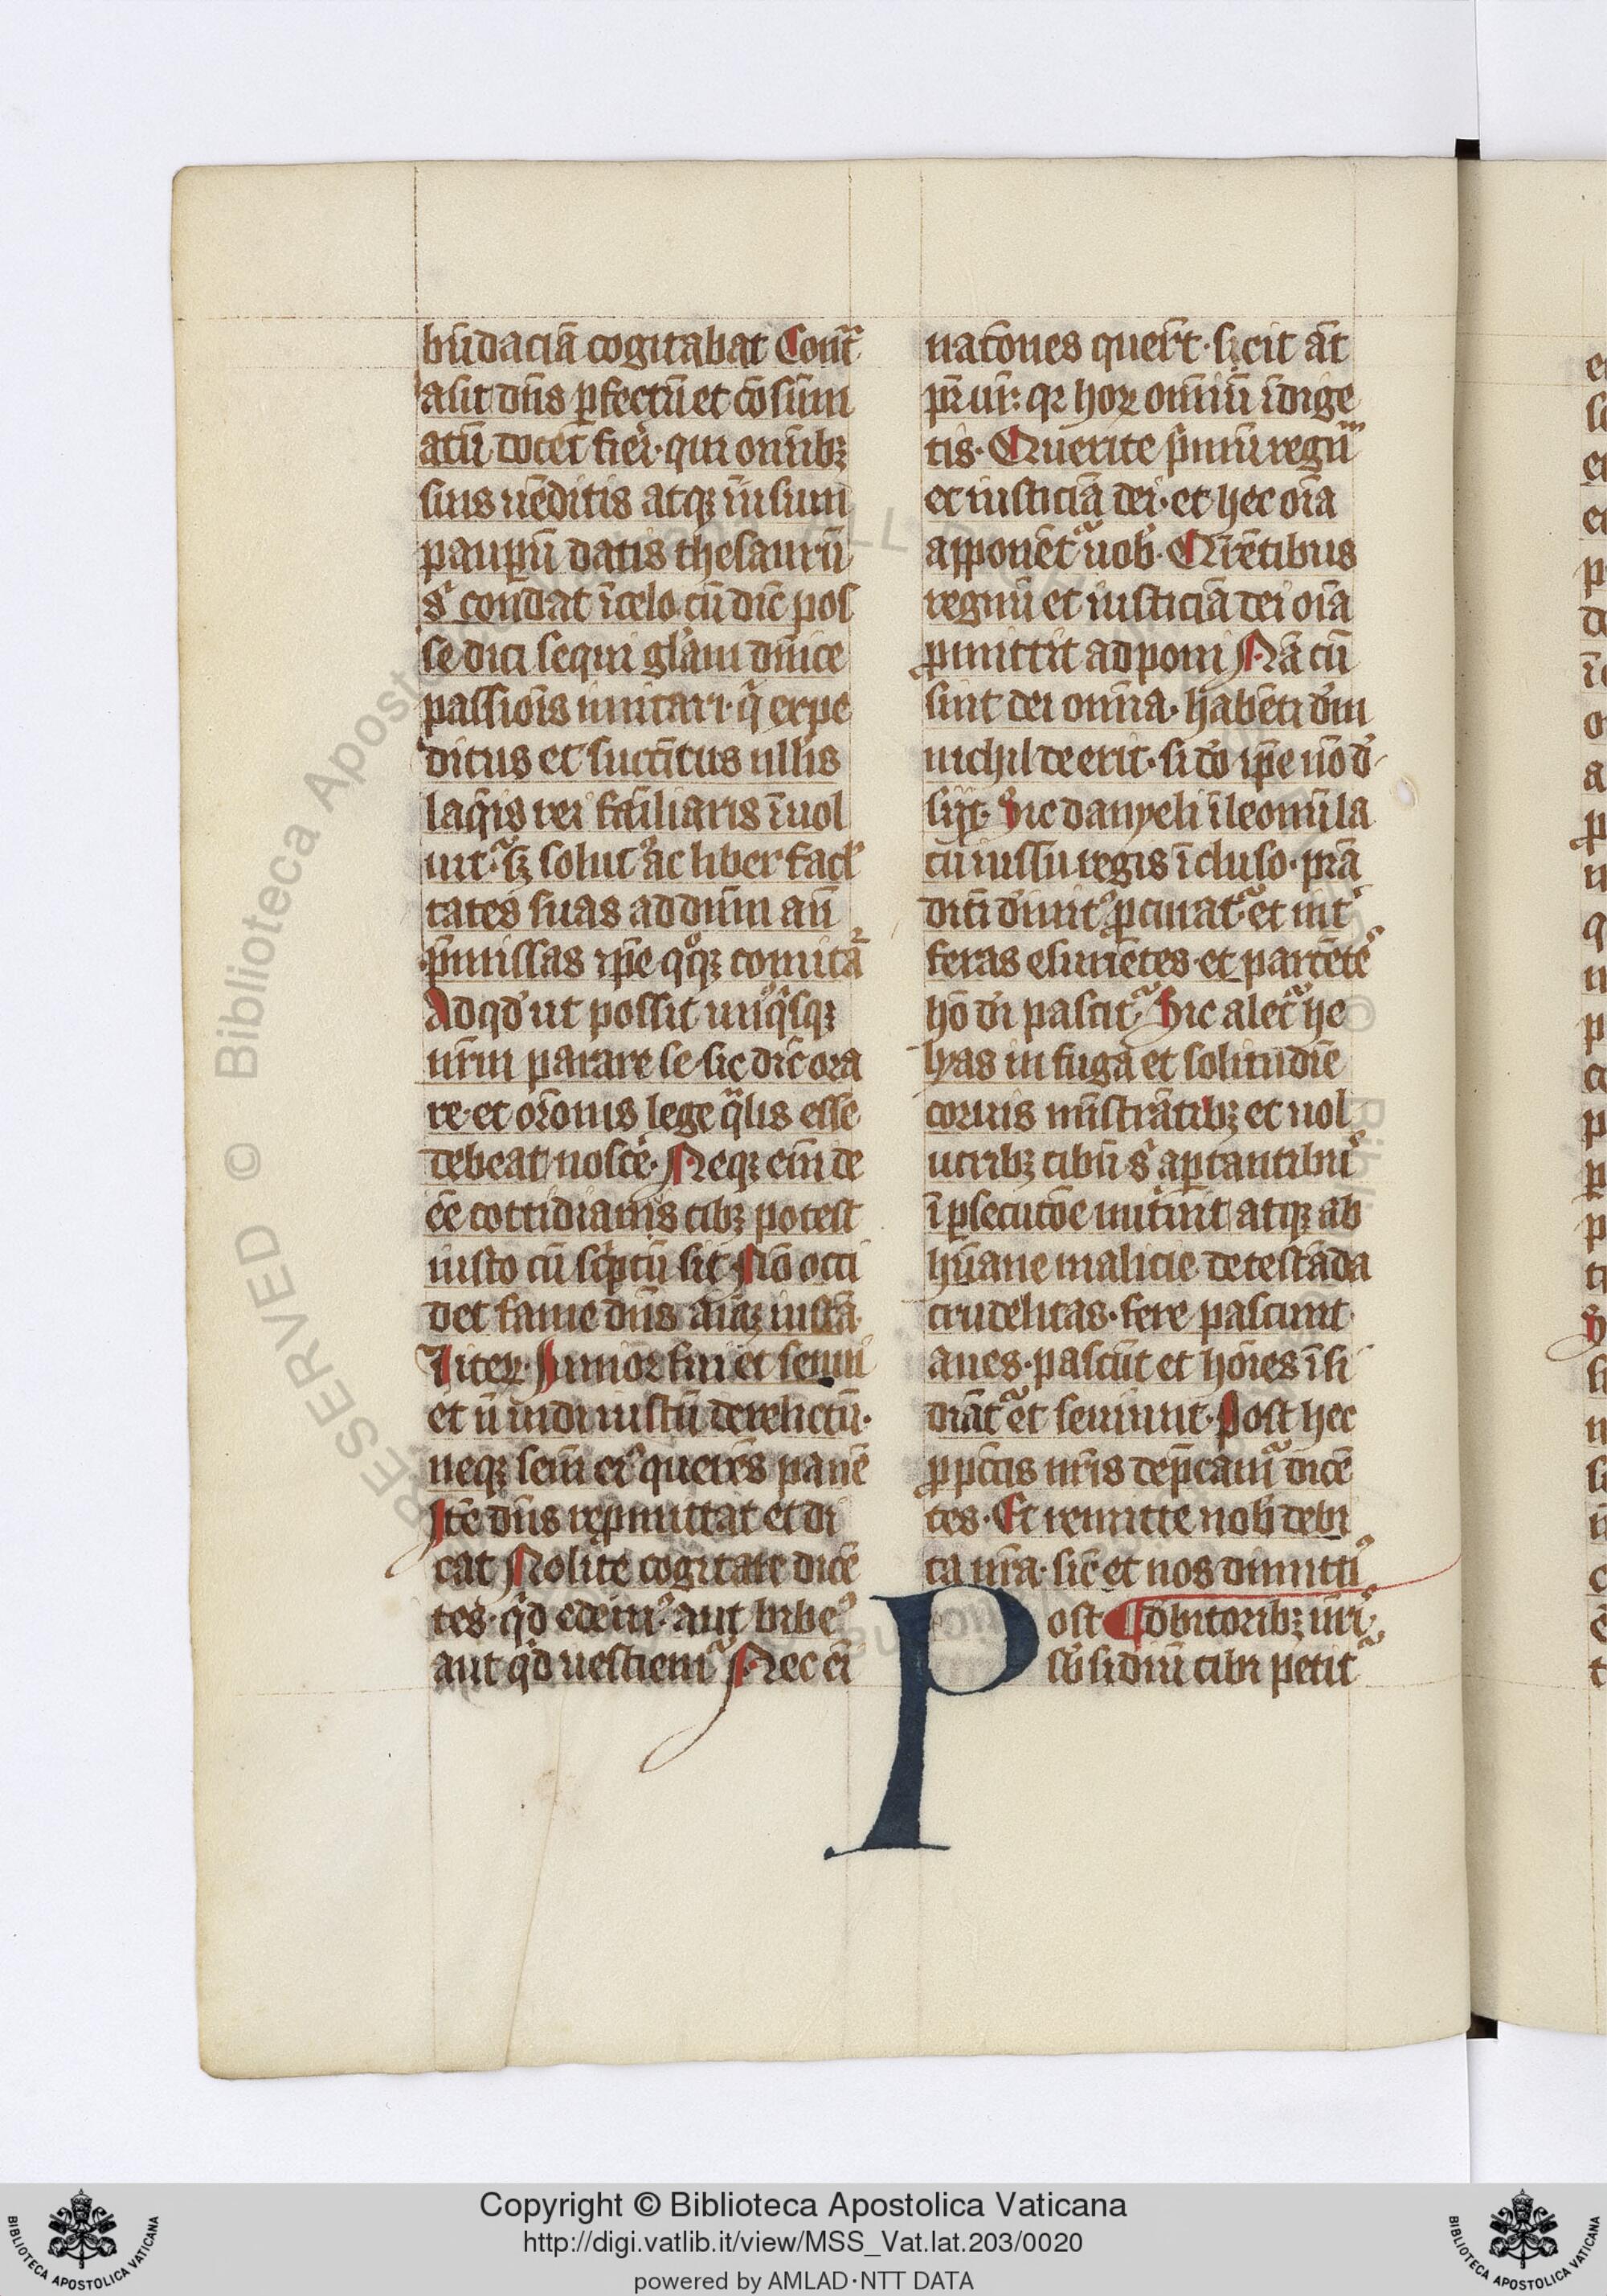 būdaciā cogitabat Contᷓ
asit dn̄s ꝑfectū et cōsūm
atū docet fieri· qui omībꝫ
suis uēditis atqꝫ in usum
pauꝑū datis thesaurū
sͥ condat ī celo· eū dic̄ pos
se dici sequi gl̓am dn̄ice
passiōis imitari· qͥ expe
ditus et succītus nllīs
laqͥs rei fāiliaris īuol
uit᷑· sꝫ solutꝰ ac liber facl̓
tates suas ad dn̄m an̄
p̄missas ip̄e qͦqꝫ comita᷑
Ad qd̓ ut possit unꝰqͥsqꝫ
nr̄m parare se· sic dic̄ ora
re· et or̄onis lege qͣlis esse
debeat nosce᷑· Neqꝫ eīm de
ēe cottidianꝰ cibꝫ potest
iusto cū scͥptū sit Nō occi
det fame dn̄s aīaꝫ iustā
Iteꝝ· Iunior fui et senui
et n̄ uidi iustū derelictū·
neqꝫ sem̄ eiꝰ querēs panē
Itē dn̄s reꝓmittat et di
cat Nolite cogitare dicē
tes· qͥd edemꝰ· aut bibeꝰ
aut qͥd uestiem᷑ Nec eī
nac̄ones quer̄t· scit āt
pr̄ ur̄· qꝛ hoꝝ omīū īdige
tis· Querite pͥmū regnū
et iusticiā dei· et hec oīa
apponēt᷑ uob̓· Qr̄entibus
regnū et iusticiā dei oīa
ꝓmittit adponi Nā cū
sint dei omīa· habēti dm̄
nichil deerit· si dō ip̄e nō d̓
sit· Sic danyeli ī leonū la
cū iussu regis īcluso· prā
diū diuinitꝰ ꝓcurat᷑· et int̓
feras esuriētes· et parcētes
hō dī pascit᷑ Sic alet᷑ he
lyas in fuga et solitudīe
coruis mīstrātibꝫ et uol
ucribꝫ cibū sͥ apꝑtantibus
ī ꝑsecuc̄oe nut̓rit᷑ atqꝫ ab
hūane malicie detestāda
crudelitas· fere pascunt
aues· pascūt et hoīes īsi
diāt᷑ et seuiunt· Post hec
ꝓ pc̄c̄is nr̄is dep̄cam᷑ dicē
tes· Et remitte nob̓ debi
ta nr̄a· sic̄ et nos dimittiꝰ
Post ¶ debitoribꝫ nr̄is
sb̓sidiū cibi petit᷑
Copyright © Biblioteca Apostolica Vaticana
http://digi.vatlib.it/view/MSS_Vat.lat.203/0020
powered by AMLAD·NTT DATA